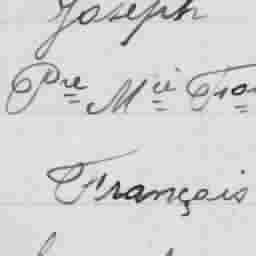 Joseph
Pre Mie Fran
François